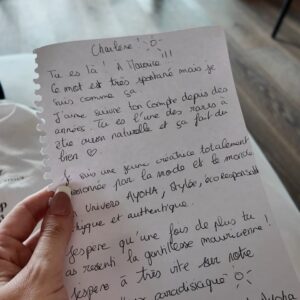 Charlene !
Tu es là ! À Maurice !!!
Ce mot est très spontané mais je
suis comme ça
J'aime suivre ton compte depuis des
années. Tu es l'une des rares à
être aussi naturelle et ça fait du
bien ♡
Je suis une jeune créatrice totalement
passionnée par la mode et le monde.
Univers AYOHA, stylée, écoresponsable
et authentique.
J'espère qu'une fois de plus tu
as ressenti la gentillesse mauricienne !
J'espère à très vite sur notre
paradisiaque